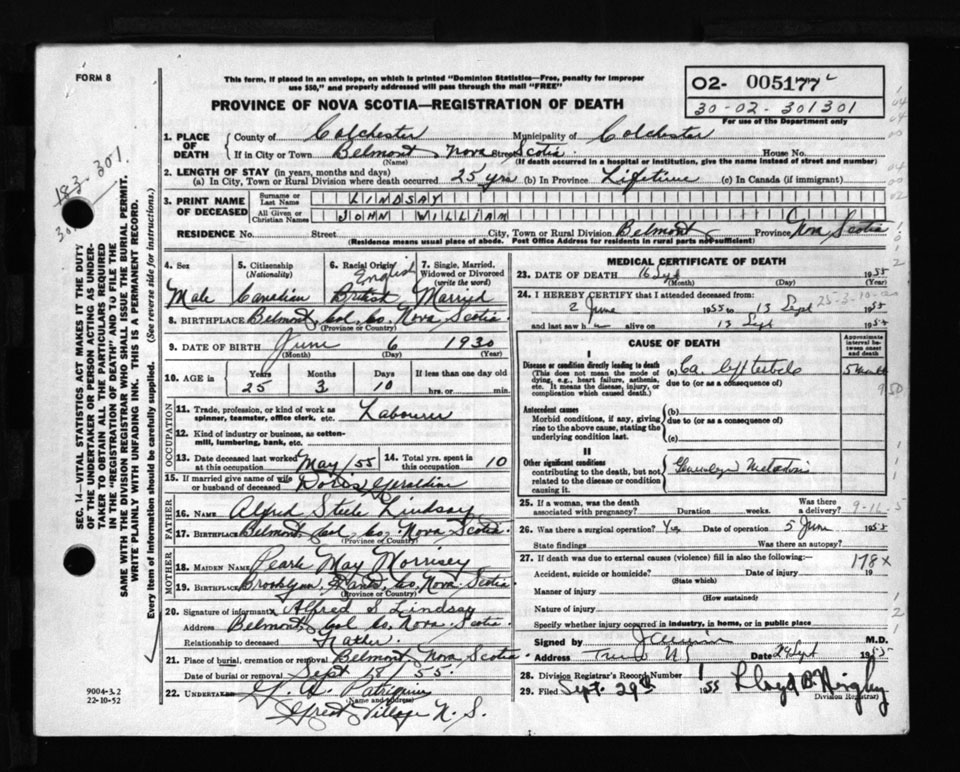 FORM 8
This form, if placed in an envelope, on which is printed "Dominion Statistics—Free, penalty for improper
use $50," and properly addressed will pass through the mail "FREE"
02- 005177
30-02-301301
For use of the Department only
PROVINCE OF NOVA SCOTIA—REGISTRATION OF DEATH
1. PLACE OF DEATH County of Colchester Municipality of Colchester
If in City or Town Belmont, Nova Scotia Street House No.
(Name) (If death occurred in a hospital or institution, give the name instead of street and number)
2. LENGTH OF STAY (in years, months and days)
(a) In City, Town or Rural Division where death occurred 25 yrs (b) In Province Lifetime (c) In Canada (if immigrant)
3. PRINT NAME OF DECEASED Surname or Last Name LINDSAY
All Given or Christian Names JOHN WILLIAM
RESIDENCE No. Street City, Town or Rural Division Belmont Province Nova Scotia
(Residence means usual place of abode. Post Office Address for residents in rural parts not sufficient)
183. 301.
SEC. 14—VITAL STATISTICS ACT MAKES IT THE DUTY
OF THE UNDERTAKER OR PERSON ACTING AS UNDER-
TAKER TO OBTAIN ALL THE PARTICULARS REQUIRED
IN THE "REGISTRATION OF DEATH" AND TO FILE THE
SAME WITH THE DIVISION REGISTRAR WHO SHALL ISSUE THE BURIAL PERMIT.
WRITE PLAINLY WITH UNFADING INK. THIS IS A PERMANENT RECORD.
Every item of information should be carefully supplied. (See reverse side for instructions.)
4. Sex Male
5. Citizenship (Nationality) Canadian
6. Racial Origin English British
7. Single, Married, Widowed or Divorced (write the word) Married
8. BIRTHPLACE Belmont Col. Co. Nova Scotia
(Province or Country)
9. DATE OF BIRTH June 6 1930
(Month) (Day) (Year)
10. AGE in Years 25 Months 3 Days 10 If less than one day
hrs. or min.
OCCUPATION
11. Trade, profession, or kind of work as
spinner, teamster, office clerk, etc. Labourer
12. Kind of industry or business, as cotton-
mill, lumbering, bank, etc.
13. Date deceased last worked at this occupation May/55 14. Total yrs. spent in this occupation 10
15. If married give name of wife or husband of deceased Doris Geraldine
FATHER
16. Name Alfred Steele Lindsay
17. Birthplace Belmont, Col. Co. Nova Scotia
(Province or Country)
MOTHER
18. MAIDEN NAME Pearle May Morrisey
19. BIRTHPLACE Brooklyn, Hants Co. Nova Scotia
(Province or Country)
20. Signature of informant Alfred S Lindsay
Address Belmont, Col. Co. Nova Scotia
Relationship to deceased Father.
21. Place of burial, cremation or removal Belmont, Nova Scotia
Date of burial or removal Sept. 18/55.
22. UNDERTAKER Patriquin
(Name and Address)
Great Village N. S.
9004-3.2
22-10-52
MEDICAL CERTIFICATE OF DEATH
23. DATE OF DEATH 16 Sept 1955
(Month) (Day) (Year)
24. I HEREBY CERTIFY that I attended deceased from:
2 June 1955 to 13 Sept 1955
and last saw h alive on 13 Sept 1955
CAUSE OF DEATH
Approximate interval between onset and death
I
Disease or condition directly leading to death
(This does not mean the mode of dying, e.g., heart failure, asthenia, etc. It means the disease, injury, or complication which caused death.)
(a) Ca. 5 month
due to (or as a consequence of)
Antecedent causes
Morbid conditions, if any, giving rise to the above cause, stating the underlying condition last.
(b)
due to (or as a consequence of)
(c)
II
Other significant conditions
contributing to the death, but not related to the disease or condition causing it.
25. If a woman, was the death associated with pregnancy? Duration weeks. Was there a delivery?
26. Was there a surgical operation? Yes Date of operation 5 June 1955
State findings Was there an autopsy?
27. If death was due to external causes (violence) fill in also the following:—
178x
Accident, suicide or homicide? Date of injury 19
(State which)
Manner of injury
(How sustained)
Nature of injury
Specify whether injury occurred in industry, in home, or in public place
Signed by M.D.
Address Truro NS Date 24 Sept 1955
28. Division Registrar's Record Number 1
29. Filed Sept. 29th 1955 Lloyd B.
Division Registrar